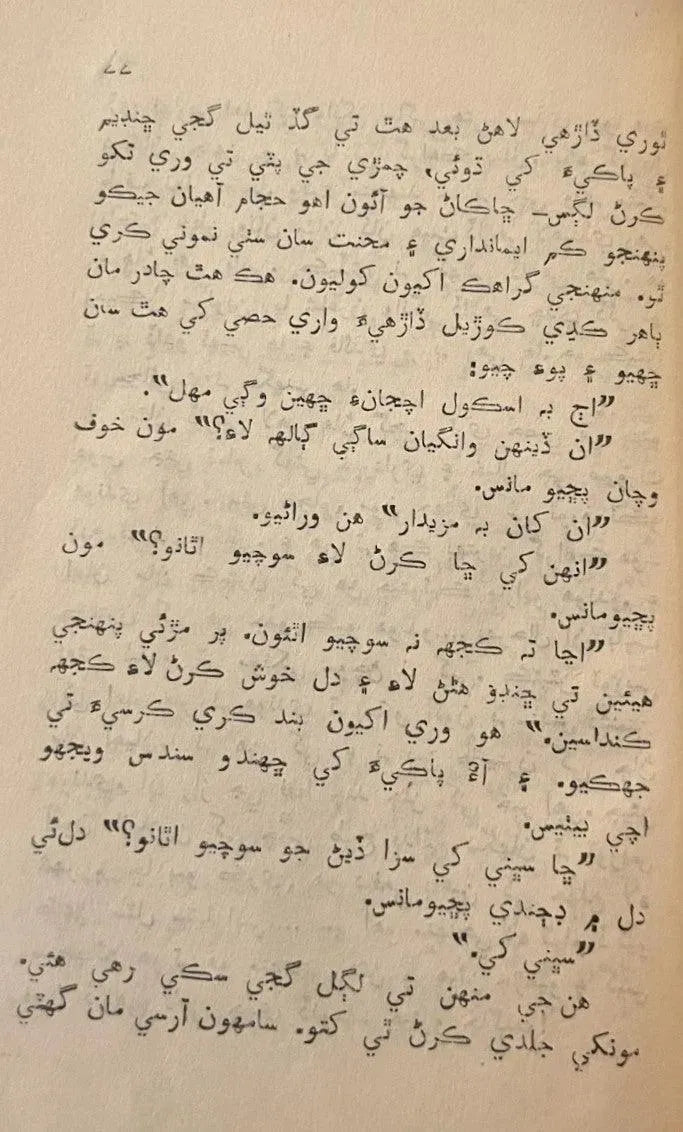 ٧٧
ٿوري ڏاڙهي لاهڻ بعد هٿ تي گڏ ٿيل گجي ڇنڊيم
۽ پاڪيءَ کي ڌوئي، چمڙي جي پٽي تي وري تکو
ڪرڻ لڳس– ڇاڪاڻ جو آئون اهو حجام آهيان جيڪو
پنهنجو ڪم ايمانداري ۽ محنت سان سٺي نموني ڪري
ٿو. منهنجي گراهڪ اکيون کوليون. هڪ هٿ چادر مان
ٻاهر ڪڍي ڪوڙيل ڏاڙهيءَ واري حصي کي هٿ سان
ڇهيو ۽ پوءِ چيو:
”اڄ بہ اسڪول اچجانءِ ڇهين وڳي مهل“.
”ان ڏينهن وانگيان ساڳي ڳالهہ لاءِ؟“ مون خوف
وچان پڇيو مانس.
”ان کان بہ مزيدار“ هن وراڻيو.
”انهن کي ڇا ڪرڻ لاءِ سوچيو اٿانو؟“ مون
پڇيومانس.
”اڃا تہ ڪجهہ نہ سوچيو اٿئون. پر مڙئي پنهنجي
هيئين تي ڇنڊو هڻڻ لاءِ ۽ دل خوش ڪرڻ لاءِ ڪجهہ
ڪنداسين.“ هو وري اکيون بند ڪري ڪرسيءَ تي
جهڪيو. ۽ آئ پاڪيءَ کي ڇهندو سندس ويجهو
اچي بيٺس.
”ڇا سڀني کي سزا ڏيڻ جو سوچيو اٿانو؟“ دل‌ئي
دل ۾ ڊڄندي پڇيومانس.
”سڀني کي.“
هن جي منهن تي لڳل گجي سڪي رهي هئي.
مونکي جلدي ڪرڻ ٿي کتو. سامهون آرسي مان گهٽي